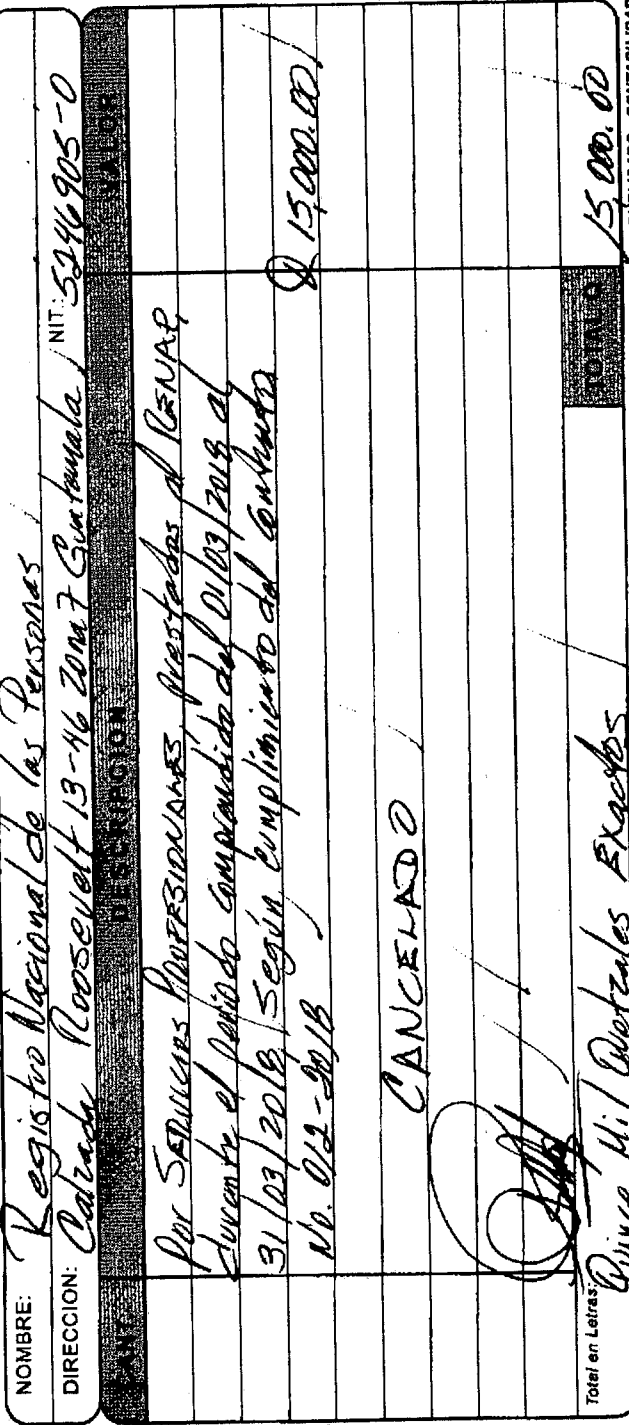 NOMBRE: Registro Nacional de las Personas
DIRECCION: Calzada Roosevelt 13-46 Zona 7 Guatemala NIT: 5246905-0
CANT. DESCRIPCION VALOR
Por SERVICIOS PROFESIONALES Prestados al RENAP,
durante el Periodo comprendido del 01/03/2018 al
31/03/2018, según cumplimiento del contrato
No. 012-2018 Q 15,000.00
CANCELADO
Total en Letras: Quince Mil Quetzales Exactos TOTAL Q 15,000.00